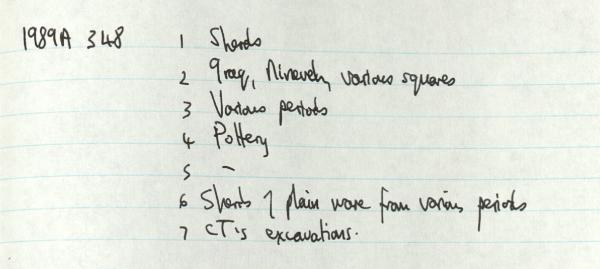 1989A 348 1 Sherds
2 Iraq, Nineveh, various squares
3 Various periods
4 Pottery
5 -
6 Sherds of plain ware from various periods
7 CT's excavations.